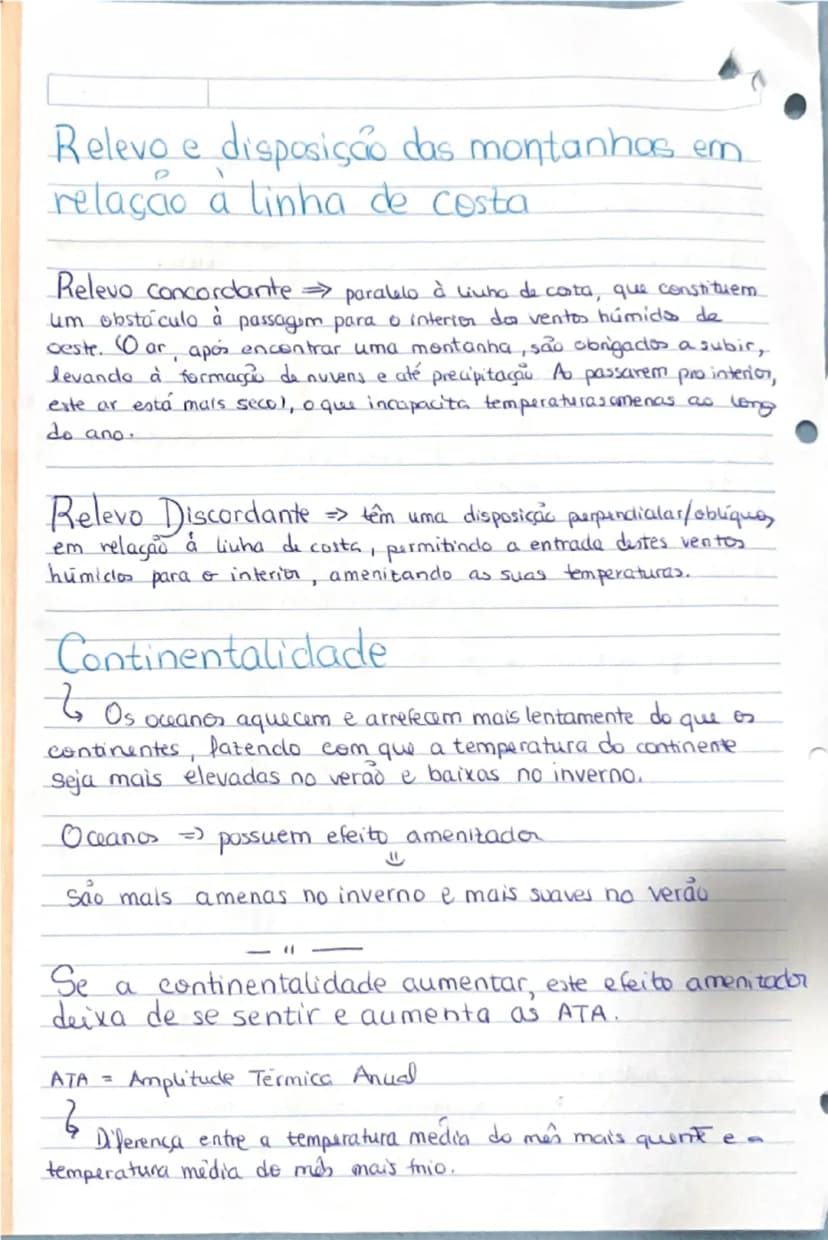 Relevo e disposição das montanhas em
relação à linha de costa
Relevo concordante => paralelo à linha de costa, que constituem
um obstáculo à passagem para o interior dos ventos húmidos de
oeste. O ar, após encontrar uma montanha, são obrigados a subir,
levando à formação de nuvens e até precipitação. Ao passarem pro interior,
este ar está mais seco!, o que incapacita temperaturas amenas ao long
do ano.
Relevo Discordante => têm uma disposição perpendicular/oblíqua,
em relação á linha de costa, permitindo a entrada destes ventos
húmidos para o interior, amenizando as suas temperaturas.
Continentalidade
↳ Os oceanos aquecem e arrefecem mais lentamente do que os
continentes, fazendo com que a temperatura do continente
seja mais elevadas no verão e baixas no inverno.
Oceanos => possuem efeito amenizador
são mais amenas no inverno e mais suaves no verão
— " —
Se a continentalidade aumentar, este efeito amenizador
deixa de se sentir e aumenta as ATA.
ATA = Amplitude Térmica Anual
↳ Diferença entre a temperatura média do mês mais quente e a
temperatura média do mês mais frio.